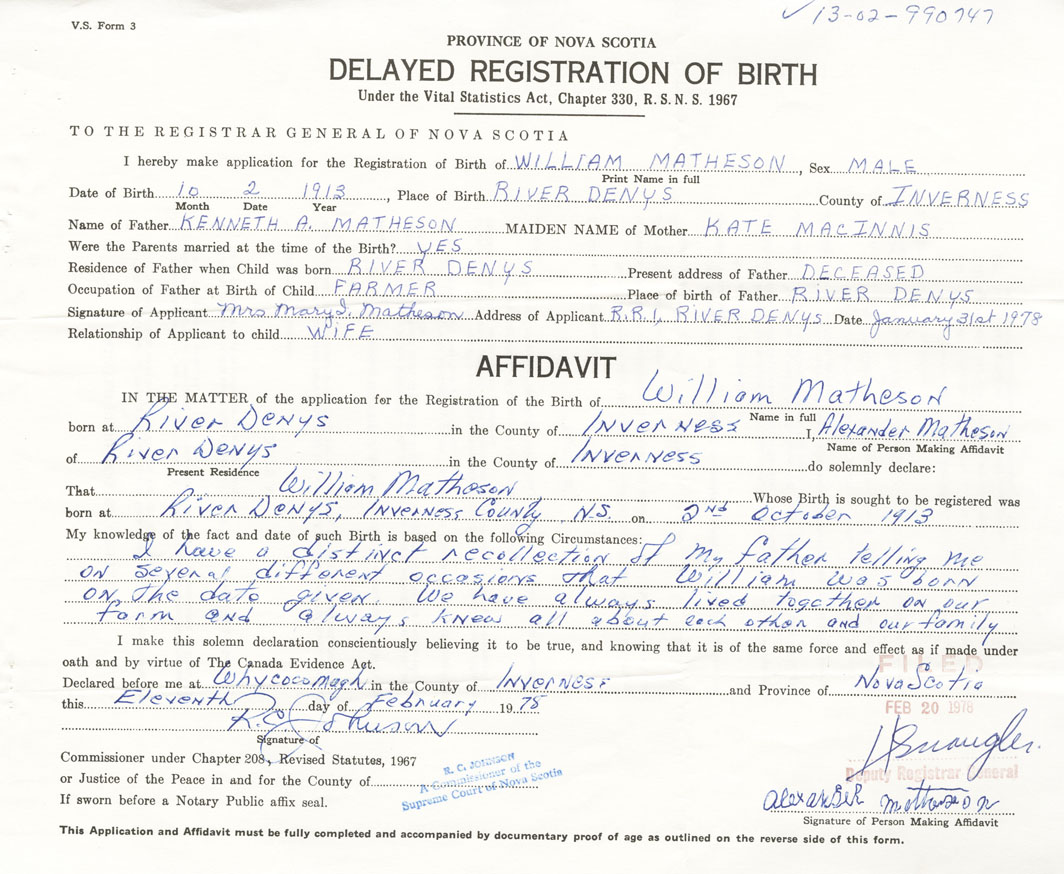 V.S. Form 3
✓ 13-02-990747
PROVINCE OF NOVA SCOTIA
DELAYED REGISTRATION OF BIRTH
Under the Vital Statistics Act, Chapter 330, R.S.N.S. 1967
TO THE REGISTRAR GENERAL OF NOVA SCOTIA
I hereby make application for the Registration of Birth of WILLIAM MATHESON, Sex MALE
Print Name in full
Date of Birth 10 2 1913, Place of Birth RIVER DENYS County of INVERNESS
Month Date Year
Name of Father KENNETH A. MATHESON MAIDEN NAME of Mother KATE MACINNIS
Were the Parents married at the time of the Birth? YES
Residence of Father when Child was born RIVER DENYS Present address of Father DECEASED
Occupation of Father at Birth of Child FARMER Place of birth of Father RIVER DENYS
Signature of Applicant Mrs Mary I. Matheson Address of Applicant R.R.1, RIVER DENYS Date January 31st 1978
Relationship of Applicant to child WIFE
AFFIDAVIT
IN THE MATTER of the application for the Registration of the Birth of William Matheson
Name in full
born at River Denys in the County of Inverness I, Alexander Matheson
Name of Person Making Affidavit
of River Denys in the County of Inverness do solemnly declare:
Present Residence
That William Matheson Whose Birth is sought to be registered was
born at River Denys, Inverness County, N.S. on 2nd October 1913
My knowledge of the fact and date of such Birth is based on the following Circumstances:
I have a distinct recollection of my father telling me
on several different occasions that William was born
on the date given. We have always lived together on our
farm and always knew all about each other and our family
I make this solemn declaration conscientiously believing it to be true, and knowing that it is of the same force and effect as if made under
oath and by virtue of The Canada Evidence Act.
FILED
Declared before me at Whycocomagh in the County of Inverness and Province of Nova Scotia
this Eleventh day of February 1978
FEB 20 1978
Signature of
Commissioner under Chapter 208, Revised Statutes, 1967
or Justice of the Peace in and for the County of
If sworn before a Notary Public affix seal.
R. C. JOHNSON
A Commissioner of the
Supreme Court of Nova Scotia
Deputy Registrar General
Alexander Matheson
Signature of Person Making Affidavit
This Application and Affidavit must be fully completed and accompanied by documentary proof of age as outlined on the reverse side of this form.